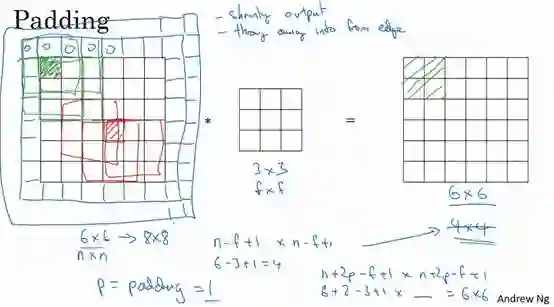 Padding
- shrinky output
- throw away info from edge
0 0 0 0 0
*
=
3 × 3
f × f
6 × 6
4 × 4
6 × 6 → 8×8
n × n
n-f+1 × n-f+1
6-3+1=4
p = padding = 1
n+2p-f+1 × n+2p-f+1
6+2-3+1 × __ = 6×6
Andrew Ng